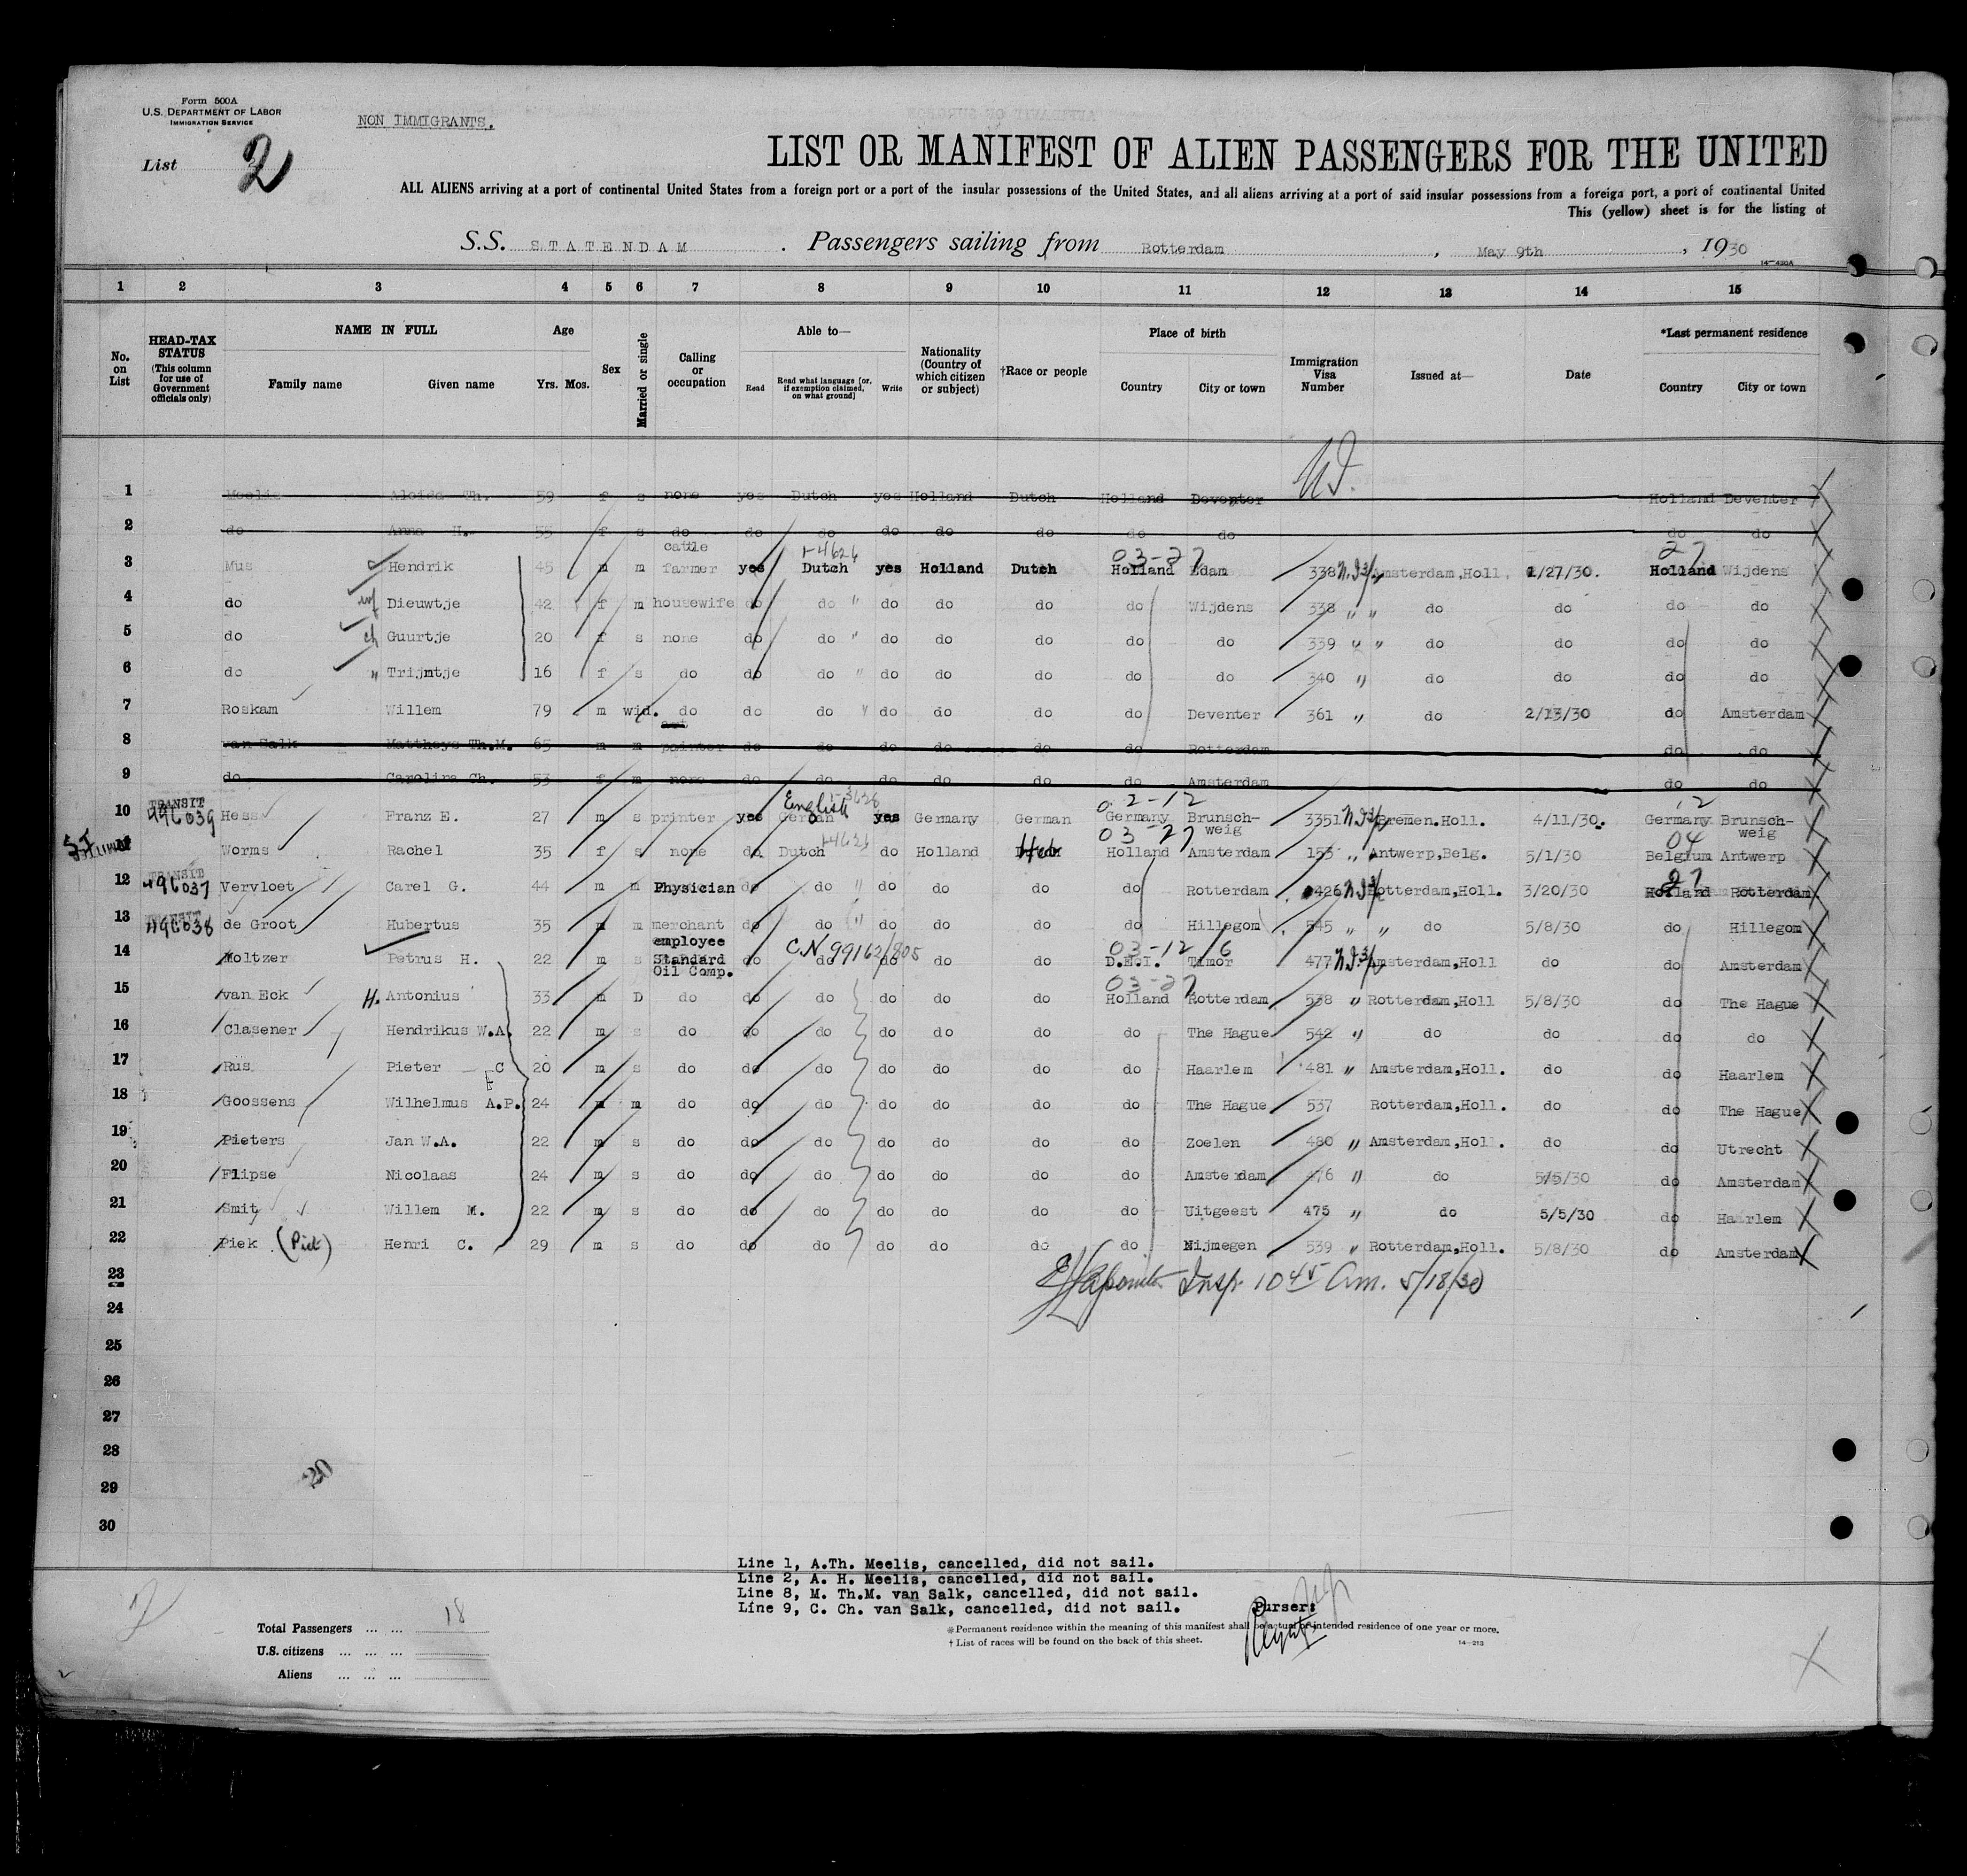 Form 500A
U.S. DEPARTMENT OF LABOR
IMMIGRATION SERVICE
NON IMMIGRANTS.
List 2
LIST OR MANIFEST OF ALIEN PASSENGERS FOR THE UNITED
ALL ALIENS arriving at a port of continental United States from a foreign port or a port of the insular possessions of the United States, and all aliens arriving at a port of said insular possessions from a foreign port, a port of continental United
This (yellow) sheet is for the listing of
S.S. STATENDAM . Passengers sailing from Rotterdam , May 9th , 1930
14-430A
1 2 3 4 5 6 7 8 9 10 11 12 13 14 15
No. on List
HEAD-TAX STATUS (This column for use of Government officials only)
NAME IN FULL
Family name Given name
Age
Yrs. Mos.
Sex
Married or single
Calling or occupation
Able to—
Read Read what language [or, if exemption claimed, on what ground] Write
Nationality (Country of which citizen or subject)
†Race or people
Place of birth
Country City or town
Immigration Visa Number
Issued at—
Date
*Last permanent residence
Country City or town
1 Meelis Aleida Th. 59 f s none yes Dutch yes Holland Dutch Holland Deventer Holland Deventer
2 do Anna H. 55 f s do do do do do do do do do do
3 Mus Hendrik 45 m m cattle farmer yes Dutch 1-4626 yes Holland Dutch 03-27 Holland Edam 338 Amsterdam,Holl. 1/27/30. 27 Holland Wijdens
4 do wf Dieuwtje 42 f m housewife do do " do do do do Wijdens 338 " " do do do do
5 do ch Guurtje 20 f s none do do " do do do do do 339 " " do do do do
6 do " Trijntje 16 f s do do do " do do do do do 340 " do do do do
7 Roskam Willem 79 m wid. do do do " do do do do Deventer 361 " do 2/13/30 do Amsterdam
8 van Salk Mattheys Th.M. 65 m m art painter do do do do do do Rotterdam do do
9 do Carolina Ch. 53 f m none do do do do do do Amsterdam do do
10 TRANSIT 496039 Hess Franz E. 27 m s printer yes English 1-3628 German yes Germany German 02-12 Germany Brunsch-weig 3351 Bremen.Holl. 4/11/30. 12 Germany Brunsch-weig
11 Worms Rachel 35 f s none do Dutch 1-4626 do Holland Heb 03-27 Holland Amsterdam 153 " Antwerp,Belg. 5/1/30 04 Belgium Antwerp
12 TRANSIT 496037 Vervloet Carel G. 44 m m Physician do do " do do do do Rotterdam 426 Rotterdam,Holl. 3/20/30 27 Holland Rotterdam
13 TRANSIT 496038 de Groot Hubertus 35 m m merchant do do " do do do do Hillegom 545 " " do 5/8/30 do Hillegom
14 Moltzer Petrus H. 22 m s employee Standard Oil Comp. do do C.N. 99162/805 do do do 03-12/6 D.E.I. Timor 477 Amsterdam,Holl do do Amsterdam
15 van Eck H. Antonius 33 m D do do do do do do 03-27 Holland Rotterdam 538 " Rotterdam,Holl 5/8/30 do The Hague
16 Clasener Hendrikus W.A. 22 m s do do do do do do do The Hague 542 " do do do do
17 Rus Pieter C 20 m s do do do do do do do Haarlem 481 " Amsterdam,Holl. do do Haarlem
18 Goossens Wilhelmus A.P. 24 m m do do do do do do do The Hague 537 Rotterdam,Holl. do do The Hague
19 Pieters Jan W.A. 22 m s do do do do do do do Zoelen 480 " Amsterdam,Holl. do do Utrecht
20 Flipse Nicolaas 24 m s do do do do do do do Amsterdam 476 " do 5/5/30 do Amsterdam
21 Smit Willem M. 22 m s do do do do do do do Uitgeest 475 " do 5/5/30 do Haarlem
22 Piek (Piet) Henri C. 29 m s do do do do do do do Nijmegen 539 " Rotterdam,Holl. 5/8/30 do Amsterdam
23 Insp. 10 45 Am. 5/18/30
24
25
26
27
28
29
30
20
Line 1, A.Th. Meelis, cancelled, did not sail.
Line 2, A. H. Meelis, cancelled, did not sail.
Line 8, M. Th.M. van Salk, cancelled, did not sail.
Line 9, C. Ch. van Salk, cancelled, did not sail.
Purser:
Total Passengers ... ... 18
U.S. citizens ... ... ...
Aliens ... ... ...
*Permanent residence within the meaning of this manifest shall be actual or intended residence of one year or more.
† List of races will be found on the back of this sheet.
14-213